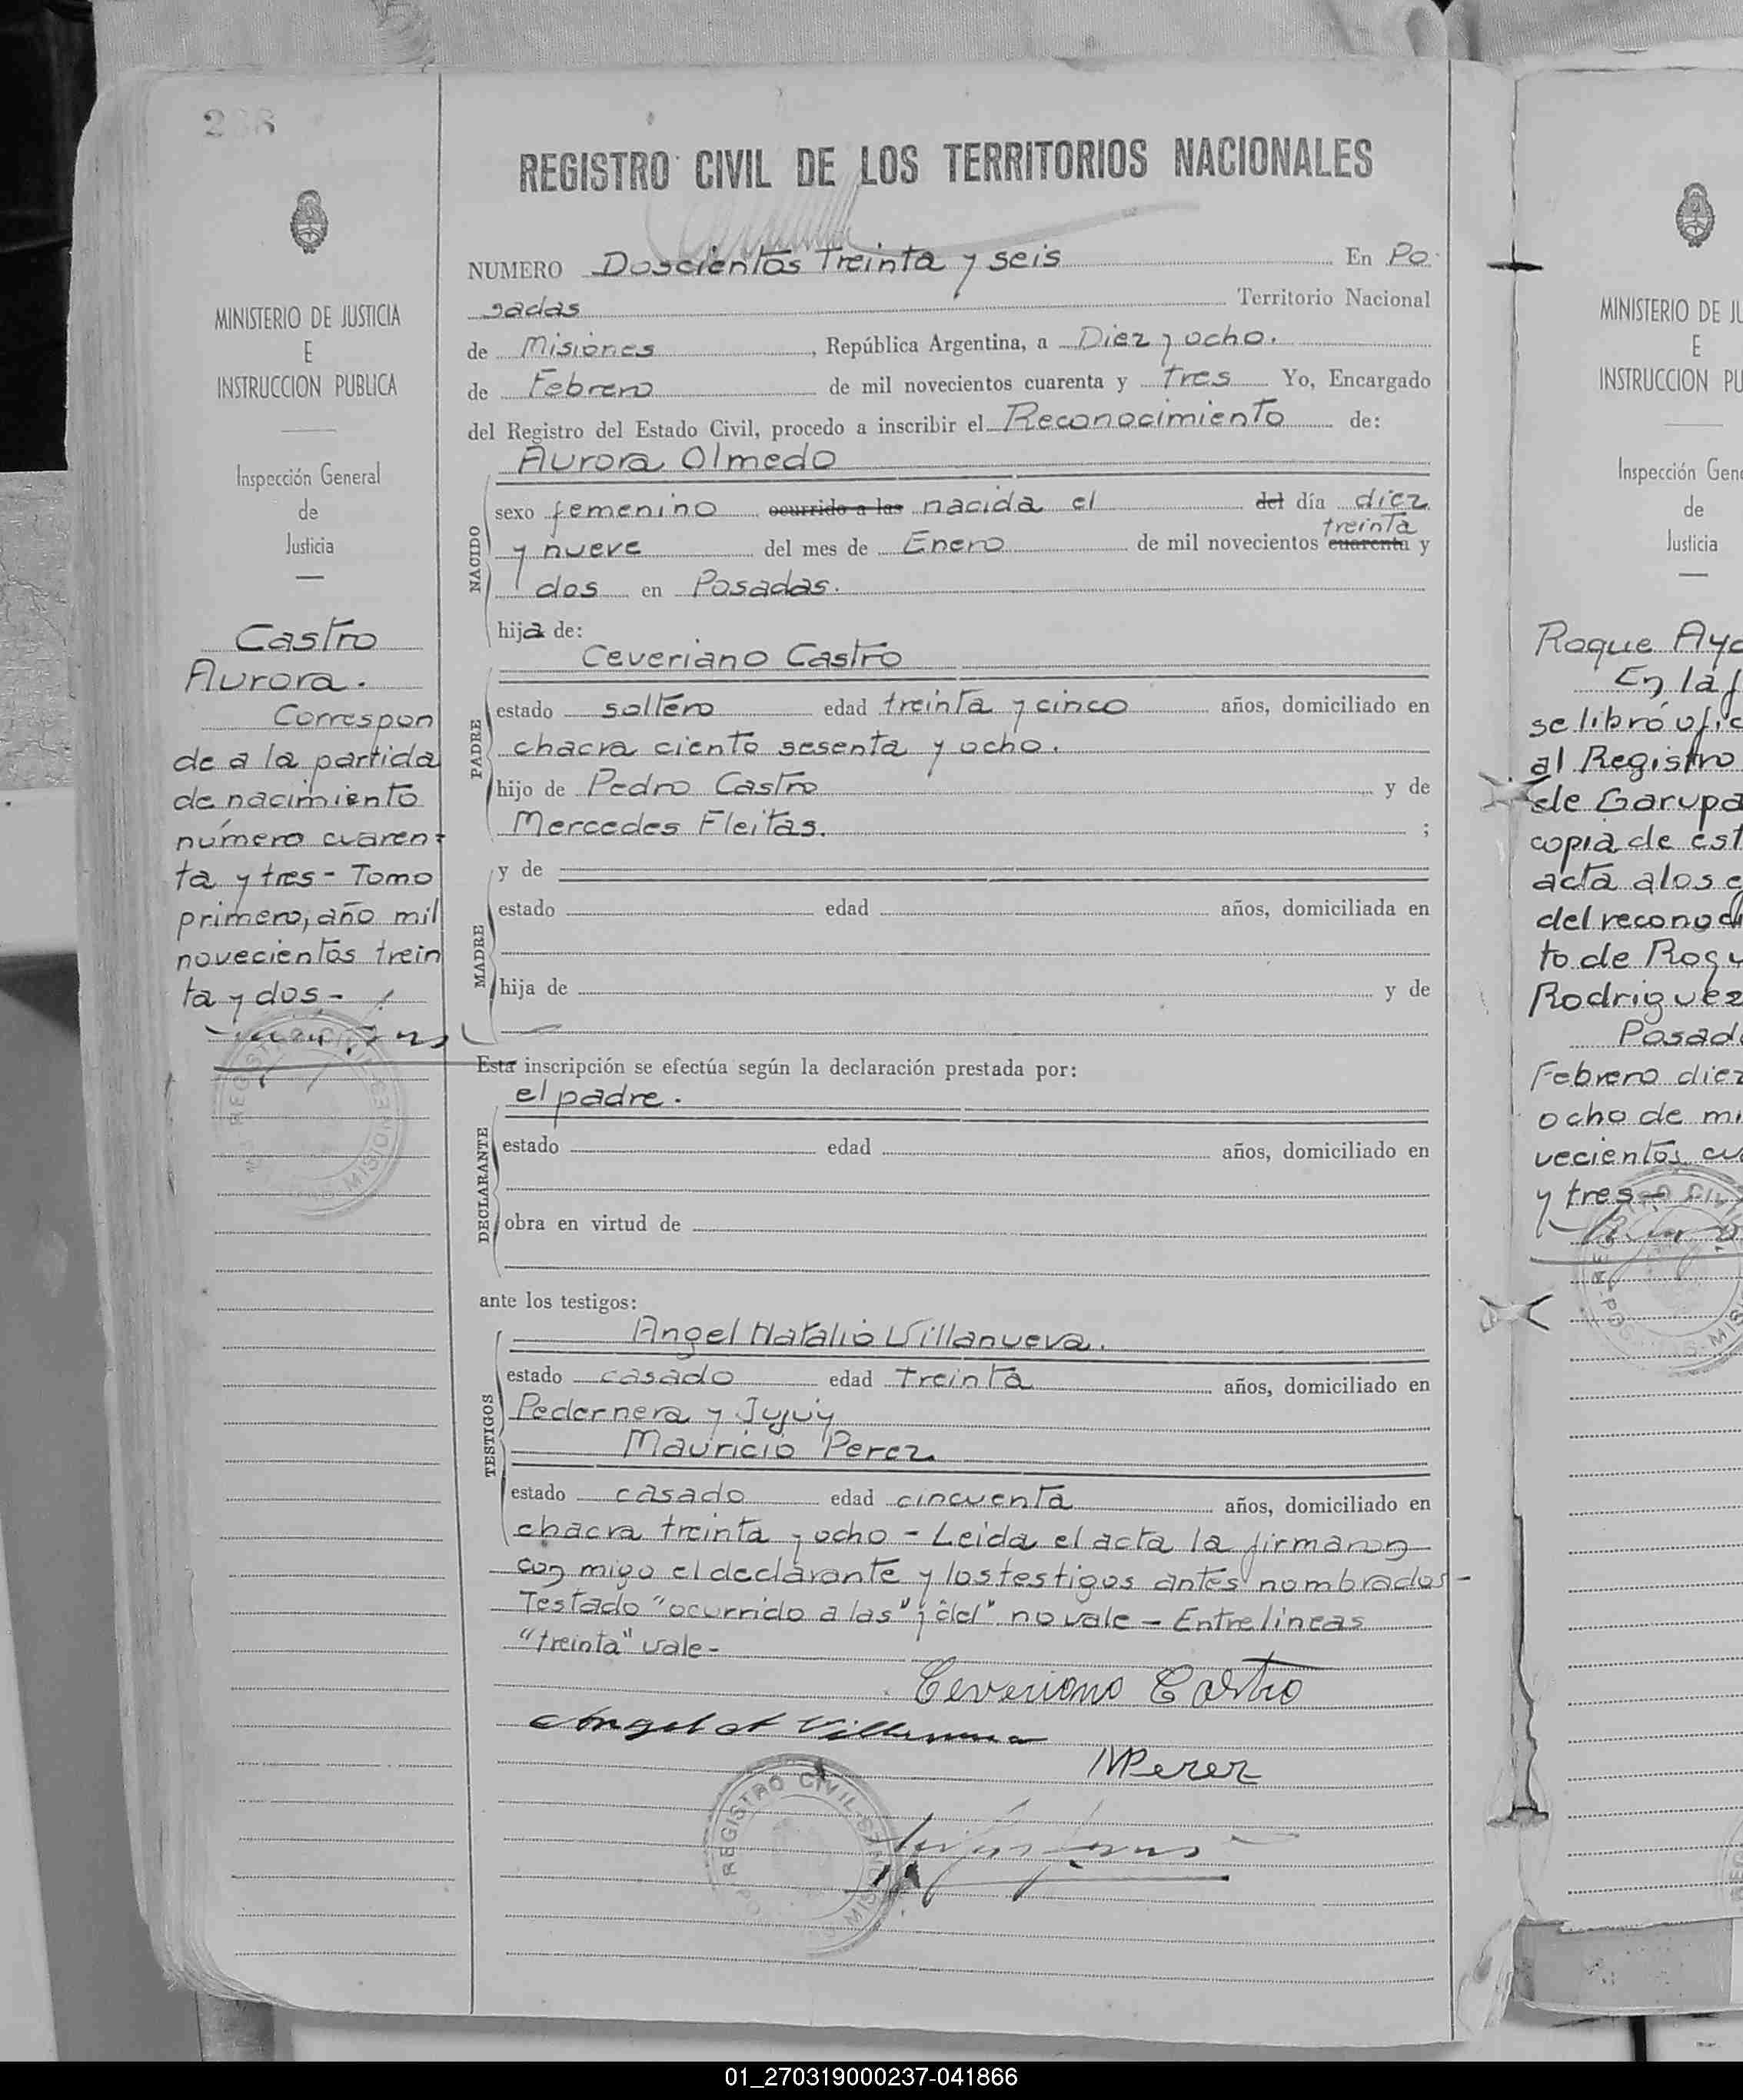 238
REGISTRO CIVIL DE LOS TERRITORIOS NACIONALES
MINISTERIO DE JUSTICIA
E
INSTRUCCION PUBLICA
Inspección General
de
Justicia
Castro
Aurora.
Correspon
de a la partida
de nacimiento
número cuaren-
ta y tres - Tomo
primero, año mil
novecientos trein
ta y dos -
NUMERO Doscientos Treinta y seis En Po
sadas Territorio Nacional
de Misiones, República Argentina, a Diez y ocho.
de Febrero de mil novecientos cuarenta y tres Yo, Encargado
del Registro del Estado Civil, procedo a inscribir el Reconocimiento de:
Aurora Olmedo
NACIDO
sexo femenino ocurrido a las nacida el del día diez
treinta
y nueve del mes de Enero de mil novecientos cuarenta y
dos en Posadas.
hija de:
Ceveriano Castro
PADRE
estado soltero edad treinta y cinco años, domiciliado en
chacra ciento sesenta y ocho.
hijo de Pedro Castro y de
Mercedes Fleitas. ;
MADRE
y de
estado edad años, domiciliada en
hija de y de
Esta inscripción se efectúa según la declaración prestada por:
el padre.
DECLARANTE
estado edad años, domiciliado en
obra en virtud de
ante los testigos:
TESTIGOS
Angel Natalio Villanueva.
estado casado edad treinta años, domiciliado en
Pedernera y Jujuy
Mauricio Perez
estado casado edad cincuenta años, domiciliado en
chacra treinta y ocho - Leida el acta la firmaron
con migo el declarante y los testigos antes nombrados -
Testado "ocurrido a las" y "del" no vale - Entre lineas
"treinta" vale -
Ceveriano Castro
Angel N Villanueva
MPerez
REGISTRO CIVIL
MINISTERIO DE JU
E
INSTRUCCION PU
Inspección Gene
de
Justicia
Roque Aya
En la f
se libró ofic
al Registro
de Garupa
copia de est
acta a los e
del reconoci
to de Roqu
Rodriguez
Posada
Febrero diez
ocho de mi
vecientos cu
y tres -
01_270319000237-041866